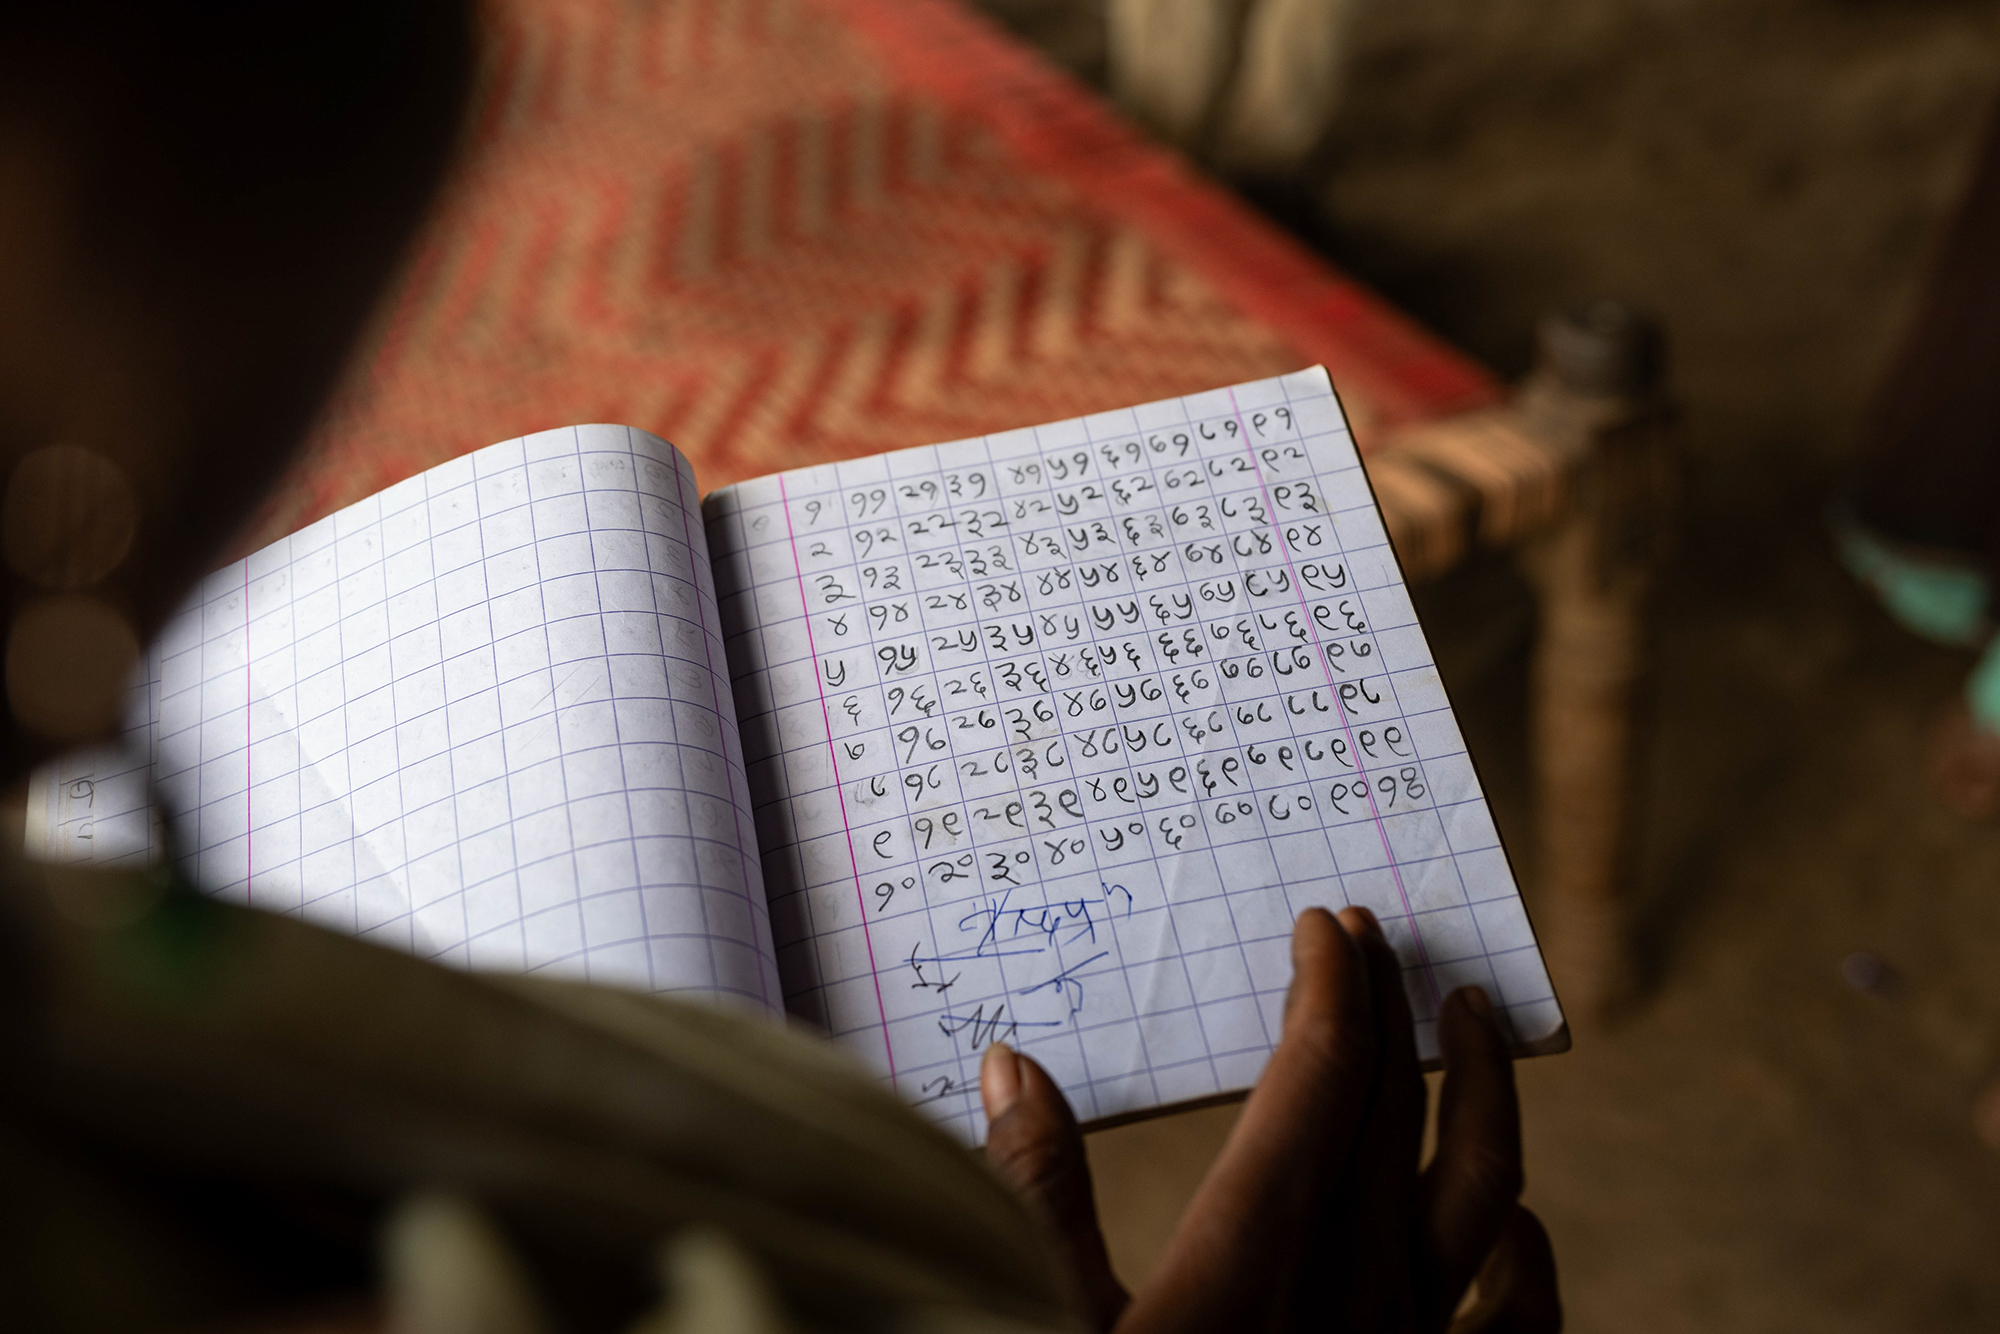 १ ११ २१ ३१ ४१ ५१ ६१ ७१ ८१ ९१
२ १२ २२ ३२ ४२ ५२ ६२ ७२ ८२ ९२
३ १३ २३ ३३ ४३ ५३ ६३ ७३ ८३ ९३
४ १४ २४ ३४ ४४ ५४ ६४ ७४ ८४ ९४
५ १५ २५ ३५ ४५ ५५ ६५ ७५ ८५ ९५
६ १६ २६ ३६ ४६ ५६ ६६ ७६ ८६ ९६
७ १७ २७ ३७ ४७ ५७ ६७ ७७ ८७ ९७
८ १८ २८ ३८ ४८ ५८ ६८ ७८ ८८ ९८
९ १९ २९ ३९ ४९ ५९ ६९ ७९ ८९ ९९
१० २० ३० ४० ५० ६० ७० ८० ९० १००